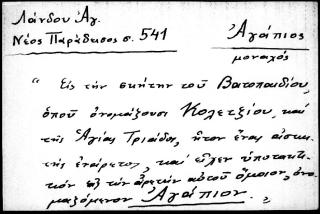 Λάνδου Ἁγ.
Νέος Παράδεισος σ. 541
Ἀγάπιος
μοναχός
" Εἰς τὴν σκήτην τοῦ Βατοπαιδίου,
ὁποῦ ὀνομάζουσι Κολετζίου, καὶ
τῆς Ἁγίας Τριάδος, ἦτον ἕνας ἀσκη-
τὴς ἐνάρετος, καὶ εἶχεν ὑποτακτι-
κὸν εἰς τὴν ἀρετὴν αὐτοῦ ὅμοιον, ὀνο-
μαζόμενον Ἀγάπιον.